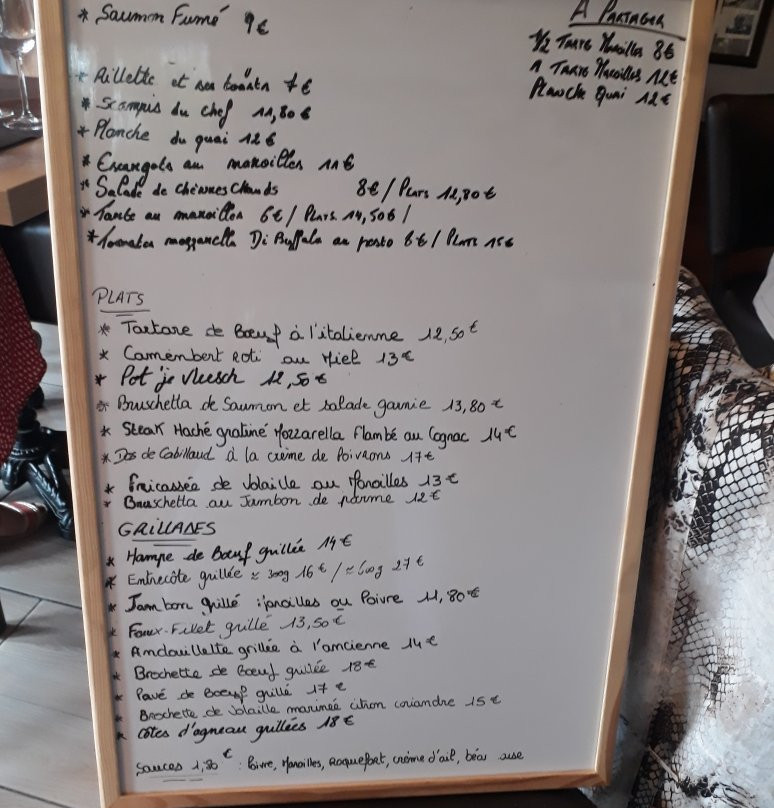 * Saumon Fumé 9€
* Rillette et ses toasts 7€
* Scampis du chef 11,80€
* Planche du quai 12€
* Escargots au maroilles 11€
* Salade de chèvres chauds 8€ / Plats 12,80€
* Tarte au maroilles 6€ / Plats 14,50€ /
* Tomates mozzarella Di Buffala au pesto 8€ / Plats 15€
A PARTAGER
1/2 TARTE Maroilles 8€
1 TARTE Maroilles 12€
Planche Quai 12€
PLATS
* Tartare de Bœuf à l'italienne 12,50€
* Camembert Roti au Miel 13€
* Pot 'je vleesch 12,50€
* Bruschetta de Saumon et salade garnie 13,80€
* Steak Haché gratiné Mozzarella Flambé au Cognac 14€
* Dos de Cabillaud à la crème de Poivrons 17€
* Fricassée de Volaille au Maroilles 13€
* Bruschetta au Jambon de parme 12€
GRILLADES
* Hampe de Bœuf grillée 14€
* Entrecôte grillée ≈ 300g 16€ / ≈ 600g 27€
* Jambon grillé Maroilles ou Poivre 11,80€
* Faux-Filet grillé 13,50€
* Andouillette grillée à l'ancienne 14€
* Brochette de Bœuf grillée 18€
* Pavé de Bœuf grillé 17€
* Brochette de Volaille marinée citron coriandre 15€
* Côtes d'agneau grillées 18€
Sauces 1,80€ : Poivre, Maroilles, Roquefort, crème d'ail, béar aise